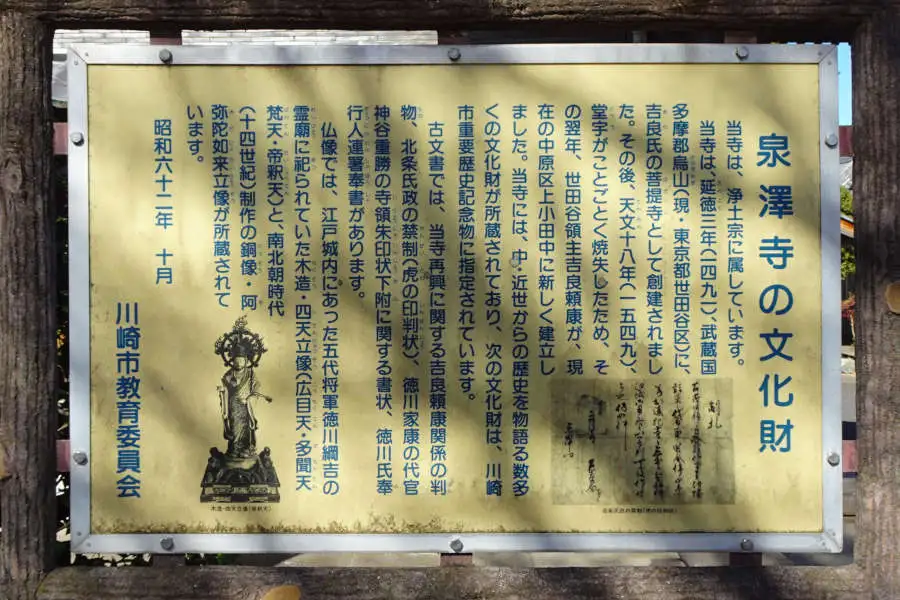 泉澤寺の文化財
当寺は、浄土宗に属しています。
当寺は、延徳三年(一四九一)、武蔵国
多摩郡烏山(現・東京都世田谷区)に、
吉良氏の菩提寺として創建されまし
た。その後、天文十八年(一五四九)、
堂宇がことごとく焼失したため、そ
の翌年、世田谷領主吉良頼康が、現
在の中原区上小田中に新しく建立し
ました。当寺には、中・近世からの歴史を物語る数多
くの文化財が所蔵されており、次の文化財は、川崎
市重要歴史記念物に指定されています。
古文書では、当寺再興に関する吉良頼康関係の判
物、北条氏政の禁制(虎の印判状)、徳川家康の代官
神谷重勝の寺領朱印状下附に関する書状、徳川氏奉
行人連署奉書があります。
仏像では、江戸城内にあった五代将軍徳川綱吉の
霊廟に祀られていた木造・四天立像(広目天・多聞天
梵天・帝釈天)と、南北朝時代
(十四世紀)制作の銅像・阿
弥陀如来立像が所蔵されて
います。
昭和六十二年 十月
川崎市教育委員会
木造・四天立像(帝釈天)
北条氏政の禁制(虎の印判状)